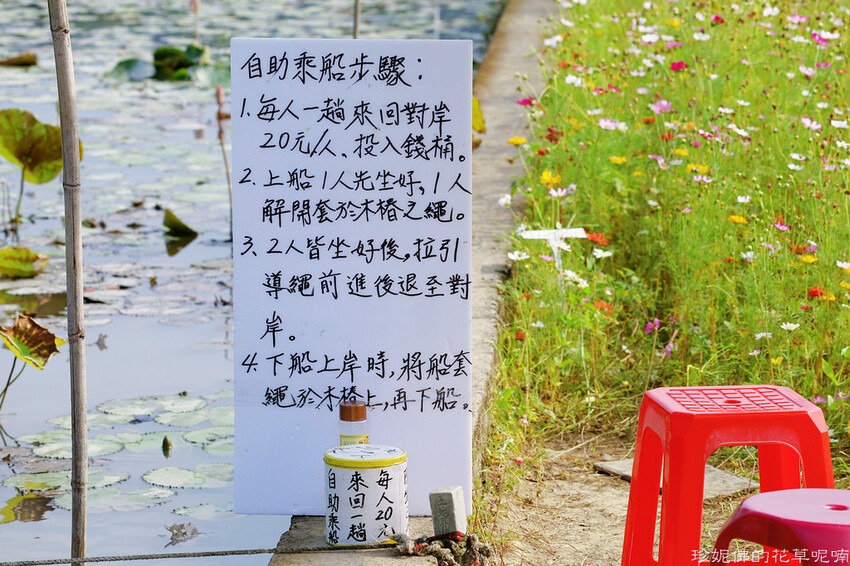 自助乘船步驟：
1. 每人一趟來回對岸
20元/人、投入錢桶。
2. 上船1人先坐好，1人
解開套於木樁之繩。
3. 2人皆坐好後，拉引
導繩前進後退至對
岸。
4. 下船上岸時，將船套
繩於木樁上，再下船。
每人20元
來回一趟
自助乘船
珍妮佛の花草呢喃